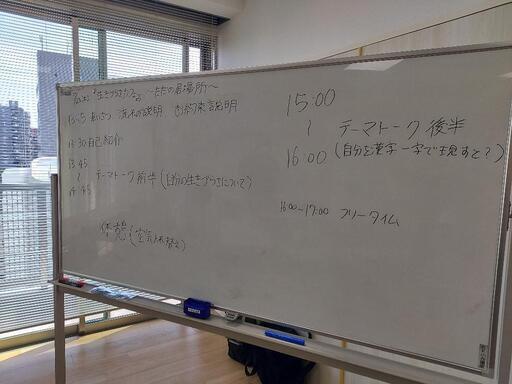 「生きづらさカフェ」 ～ただの居場所～
あいさつ 流れの説明 説明
13:30 自己紹介
13:45
〜
14:45
テーマトーク 前半 (自分の生きづらさについて)
休憩 (空気入れ替え)
15:00
〜
16:00
テーマトーク 後半
(自分を漢字一字で表すと?)
16:00~17:00 フリータイム